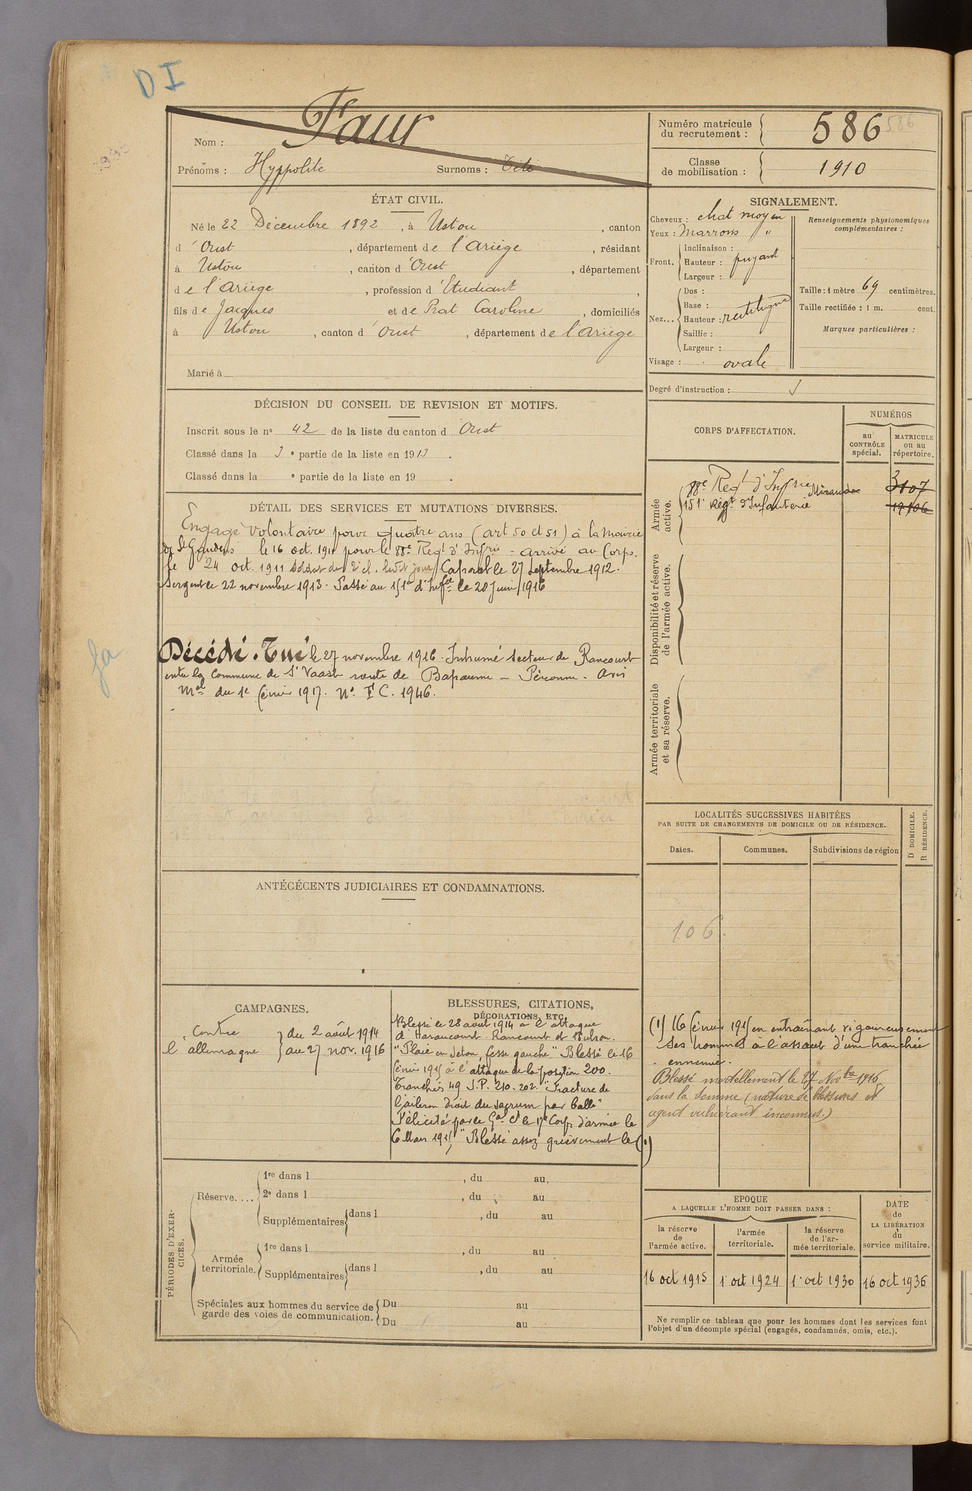 D I
Nom : Faur
Prénoms : Hyppolite Surnoms :
Numéro matricule du recrutement : 586
586
Classe de mobilisation : 1910
ÉTAT CIVIL.
Né le 22 Décembre 1892, à Ustou, canton
d'Oust, département de l'Ariège, résidant
à Ustou, canton d'Oust, département
de l'Ariège, profession d'Etudiant,
fils de Jacques et de Prat Caroline, domiciliés
à Ustou, canton d'Oust, département de l'Ariège
Marié à
SIGNALEMENT.
Cheveux : chat moyen
Yeux : Marrons "
Front. Inclinaison :
Hauteur : fuyant
Largeur :
Nez... Dos :
Base :
Hauteur : rectiligne
Saillie :
Largeur :
Visage : ovale
Renseignements physionomiques complémentaires :
Taille : 1 mètre 69 centimètres.
Taille rectifiée : 1 m. cent.
Marques particulières :
Degré d'instruction :
DÉCISION DU CONSEIL DE REVISION ET MOTIFS.
Inscrit sous le n° 42 de la liste du canton d Oust
Classé dans la 3e partie de la liste en 1913.
Classé dans la e partie de la liste en 19 .
CORPS D'AFFECTATION.
NUMÉROS
au CONTRÔLE spécial.
MATRICULE ou au répertoire.
Armée active.
88e Regt d'Infrie Mirande 3107
151e Régt d'Infanterie 12106
Disponibilité et réserve de l'armée active.
Armée territoriale et sa réserve.
DÉTAIL DES SERVICES ET MUTATIONS DIVERSES.
Engagé volontaire pour quatre ans (art 50 et 51) à la Mairie
de St Gaudens le 16 oct. 1911 pour le 88e Regt d'Infrie - arrivé au Corps.
le 24 oct. 1911 soldat de 2e cl. ledit jour, Caporal le 27 septembre 1912.
Sergent le 22 novembre 1913. Passé au 151e d'Inftie le 20 juin 1916
Décédé. Tué le 27 novembre 1916. Inhumé secteur de Rancourt
entre la Commune de St Vaast route de Bapaume - Péronne. Avis
Mel du 1e février 1917. N° F C. 1946.
LOCALITÉS SUCCESSIVES HABITÉES
PAR SUITE DE CHANGEMENTS DE DOMICILE OU DE RÉSIDENCE.
Dates. Communes. Subdivisions de région
D DOMICILE.
R RÉSIDENCE.
106.
ANTÉCÉCENTS JUDICIAIRES ET CONDAMNATIONS.
CAMPAGNES.
Contre l'allemagne } du 2 août 1914
au 27 nov. 1916
BLESSURES, CITATIONS,
DÉCORATIONS, ETC.
Blessé le 28 août 1914 à l'attaque
d'Haraucourt Rancourt et Bulson.
"Plaie en séton, fesse gauche" Blessé le 16
février 1915 à l'attaque de la position 200.
tranchées 49 J.P. 210. 202. fracture de
l'aileron droit du sacrum par balle"
Félicité par le Gal Ct le 17e Corps d'armée le
6 Mars 1915, "Blessé assez grièvement le (1)
(1) 16 février 1915 en entraînant vigoureusement
ses hommes à l'assaut d'une tranchée
ennemie.
Blessé mortellement le 27 Novbre 1916
dans la Somme (nature de blessures et
agent vulnérant inconnus)
PÉRIODES D'EXERCICES.
Réserve.... 1re dans l , du au
2e dans l , du au
Supplémentaires dans l , du au
Armée territoriale. 1re dans l , du au
Supplémentaires dans l , du au
Spéciales aux hommes du service de garde des voies de communication. Du au
Du au
EPOQUE
A LAQUELLE L'HOMME DOIT PASSER DANS :
la réserve de l'armée active.
l'armée territoriale.
la réserve de l'armée territoriale.
DATE de LA LIBÉRATION du service militaire.
16 oct 1915 1 oct 1924 1 oct 1930 16 oct 1936
Ne remplir ce tableau que pour les hommes dont les services font
l'objet d'un décompte spécial (engagés, condamnés, omis, etc.).